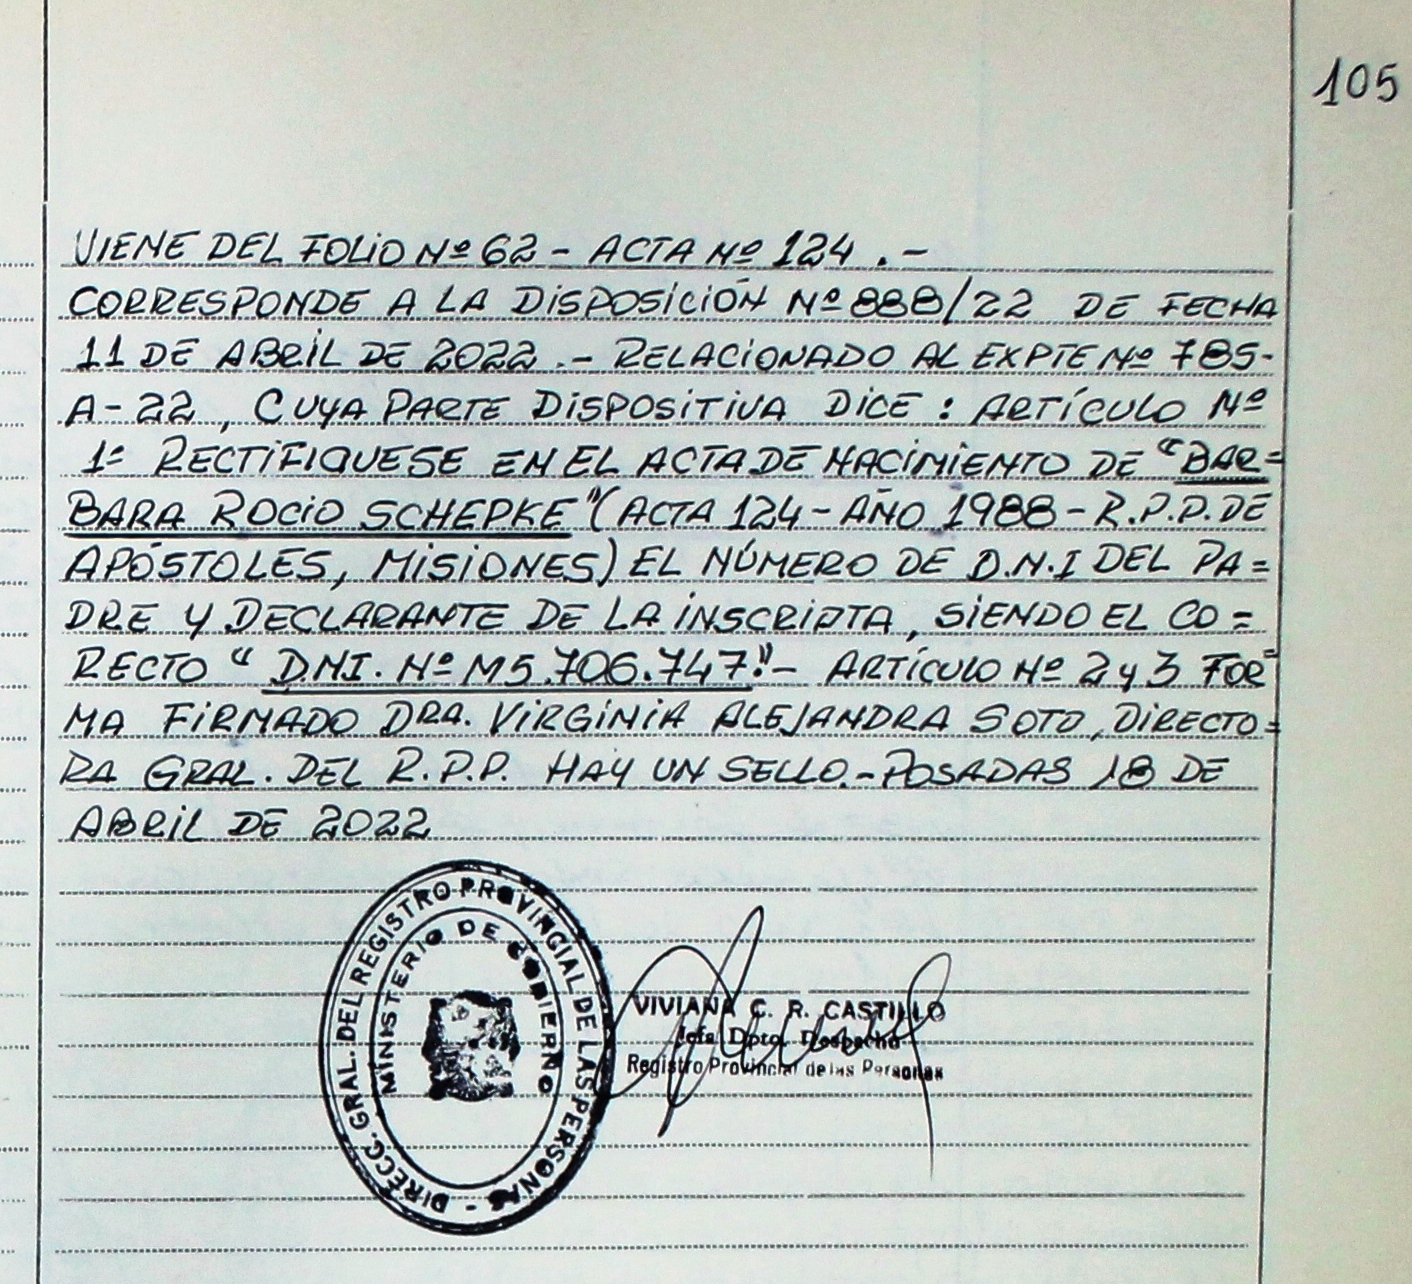 105
VIENE DEL FOLIO Nº 62 - ACTA Nº 124 . -
CORRESPONDE A LA DISPOSICIÓN Nº 888/22 DE FECHA
11 DE ABRIL DE 2022 .- RELACIONADO AL EXPTE Nº 785-
A-22 , CUYA PARTE DISPOSITIVA DICE : ARTÍCULO Nº
1º RECTIFIQUESE EN EL ACTA DE NACIMIENTO DE "BAR=
BARA ROCIO SCHEPKE" (ACTA 124 - AÑO 1988 - R.P.P. DE
APÓSTOLES, MISIONES) EL NÚMERO DE D.N.I DEL PA=
DRE Y DECLARANTE DE LA INSCRIPTA, SIENDO EL CO=
RECTO " D.N.I. Nº M5.706.747." - ARTÍCULO Nº 2 y 3 FOR=
MA FIRMADO DRA. VIRGINIA ALEJANDRA SOTO, DIRECTO=
RA GRAL. DEL R.P.P. HAY UN SELLO.- POSADAS 18 DE
ABRIL DE 2022
DIRECC. GRAL. DEL REGISTRO PROVINCIAL DE LAS PERSONAS -
MINISTERIO DE GOBIERNO
VIVIANA C. R. CASTILLO
Jefa Dpto. Despacho
Registro Provincial de las Personas